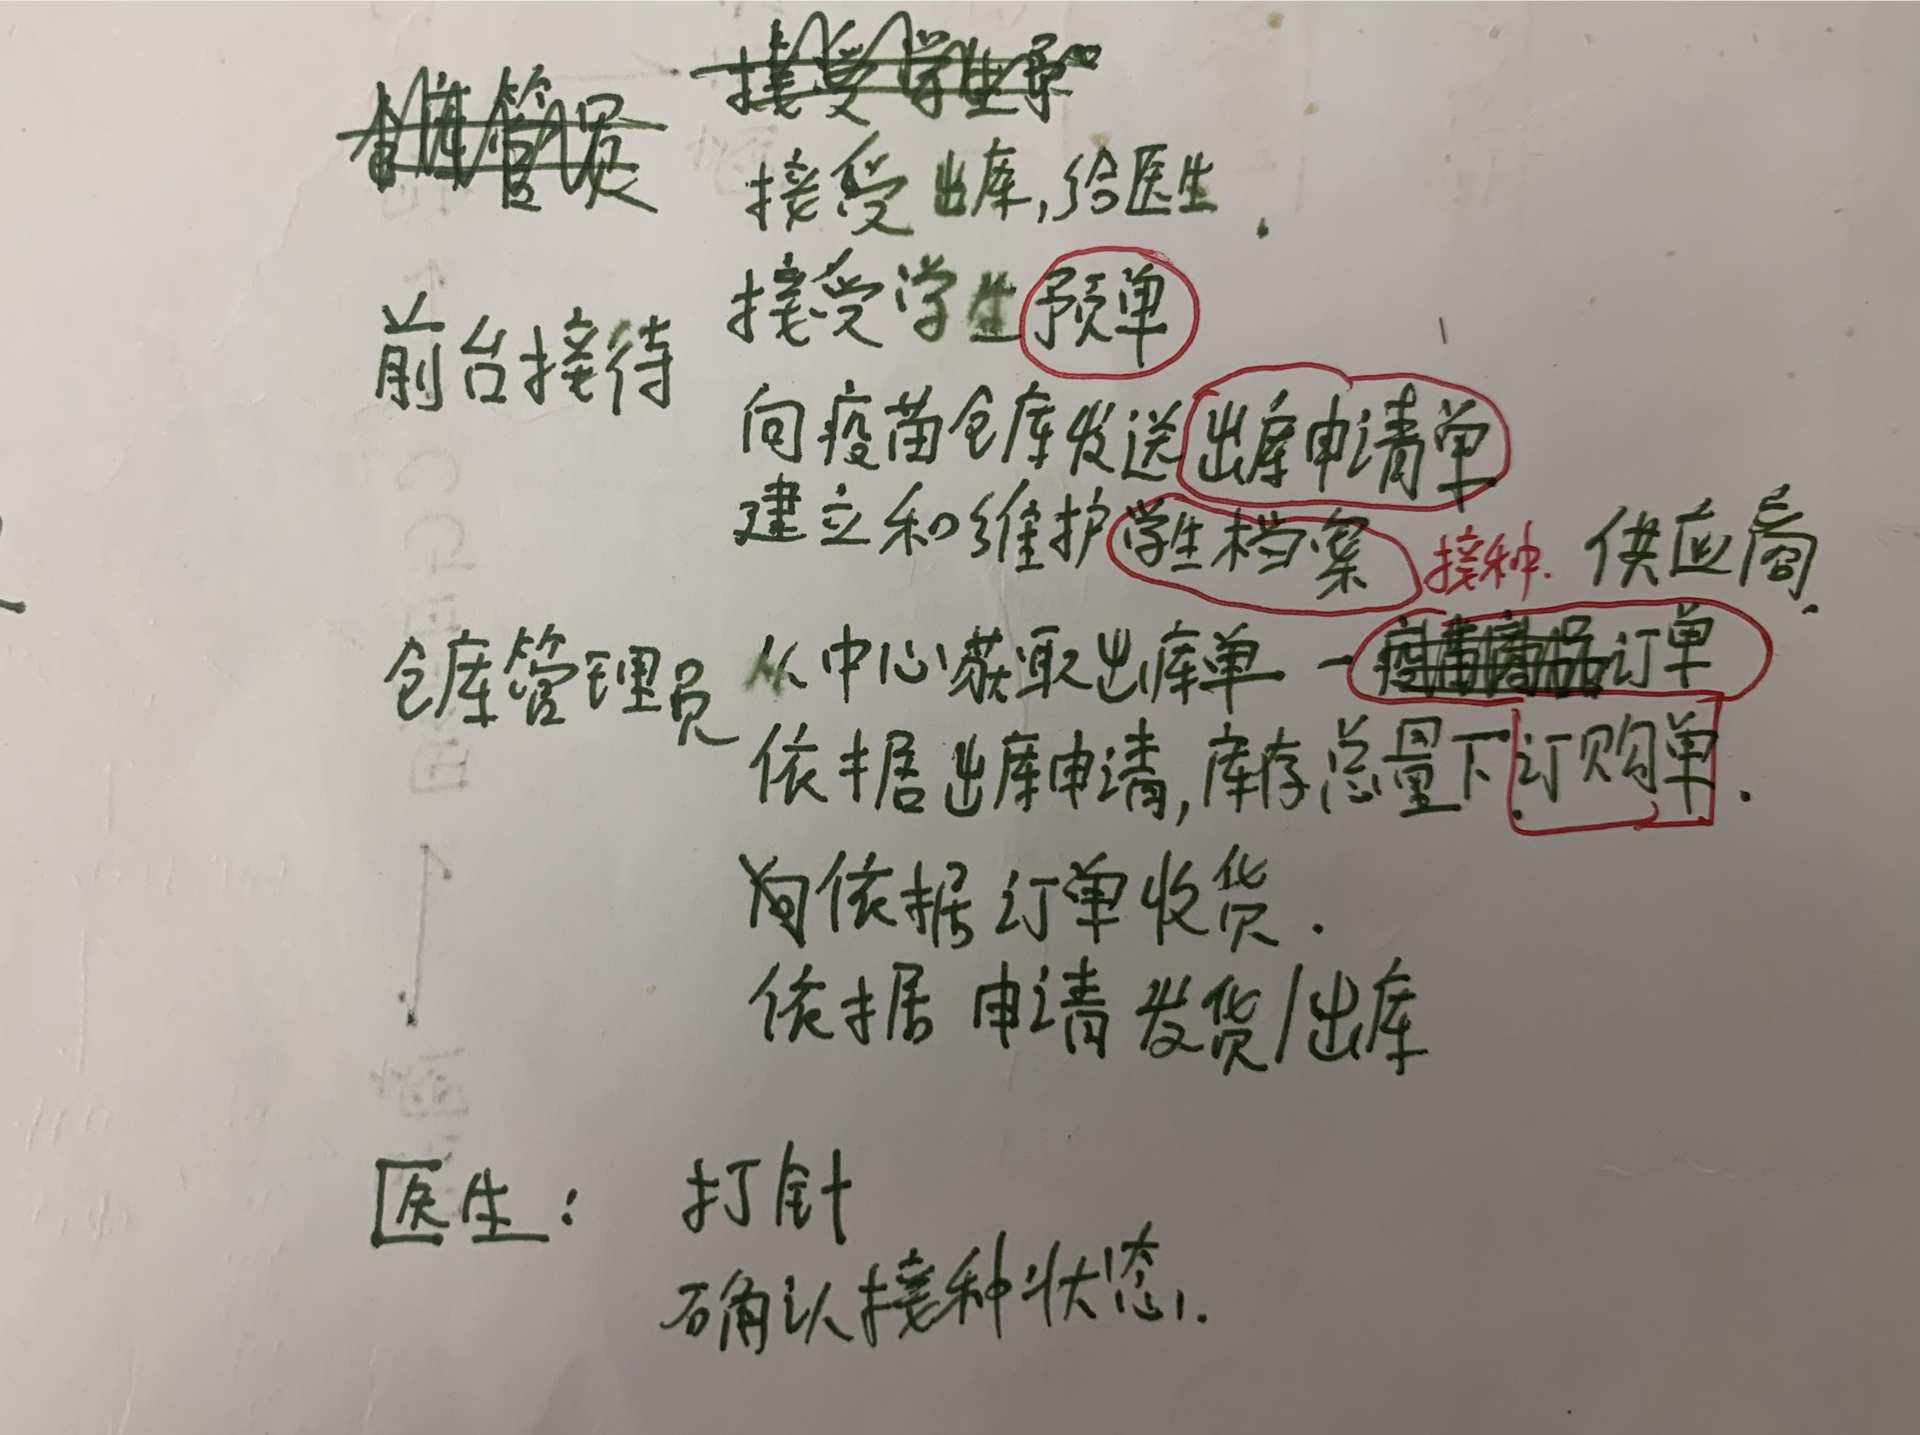 接受出库,给医生.
接受学生预单
前台接待
向疫苗仓库发送出库申请单
建立和维护学生档案 接种. 供应商.
仓库管理员 从中心获取出库单 - 订单
依据出库申请,库存总量下订购单.
依据订单收货.
依据 申请 发货/出库
医生: 打针
确认接种状态.